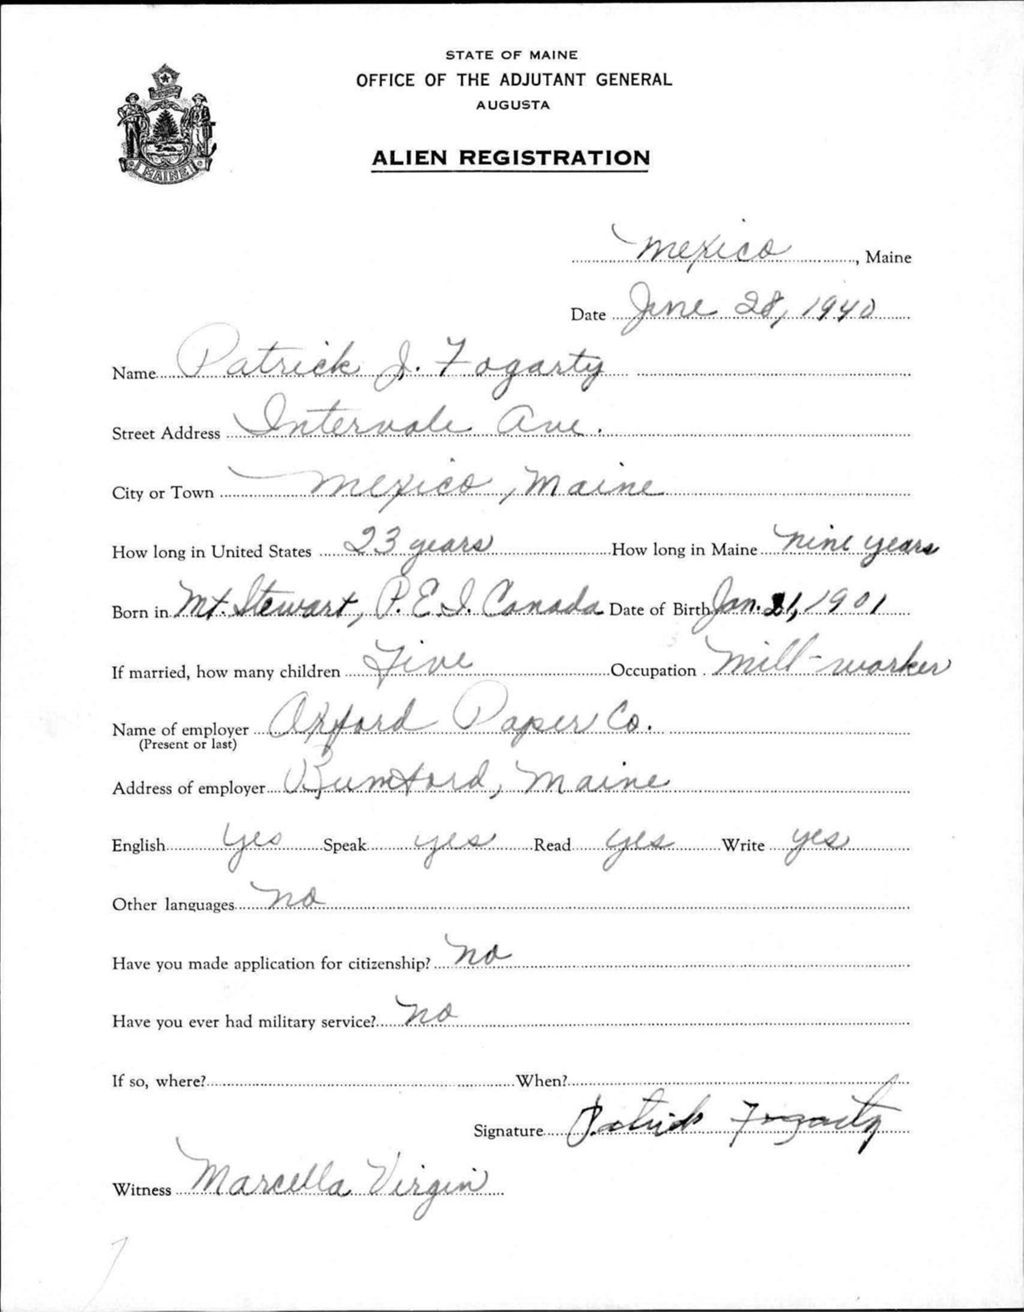 STATE OF MAINE
OFFICE OF THE ADJUTANT GENERAL
AUGUSTA
MAINE
ALIEN REGISTRATION
Mexico, Maine
Date June 28, 1940
Name Patrick J. Fogarty
Street Address Intervale Ave.
City or Town Mexico, Maine
How long in United States 23 years How long in Maine nine years
Born in Mt. Stewart, P.E.I. Canada Date of Birth Jan. 21, 1901
If married, how many children Five Occupation Mill-worker
Name of employer Oxford Paper Co.
(Present or last)
Address of employer Rumford, Maine
English yes Speak yes Read yes Write yes
Other languages no
Have you made application for citizenship? no
Have you ever had military service? no
If so, where? When?
Signature Patrick Fogarty
Witness Marcella Virgin